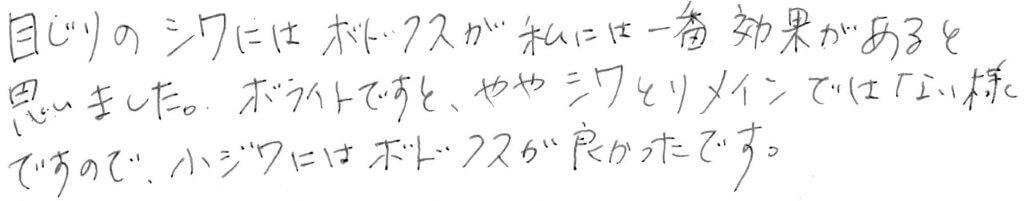 目じりのシワにはボトックスが私には一番効果があると
思いました。ボライトですと、ややシワとりメインではない様
ですので、小ジワにはボトックスが良かったです。